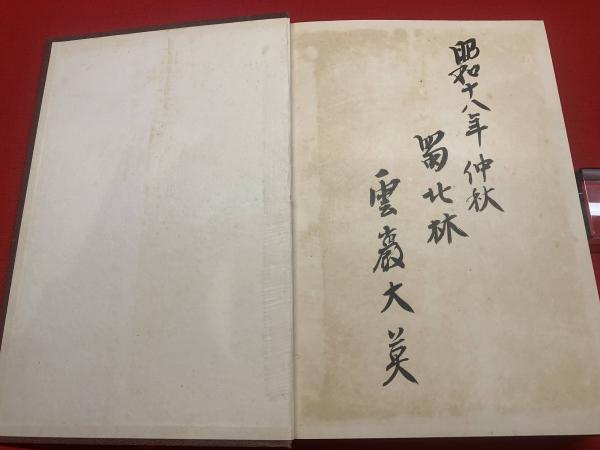 昭和十八年 仲秋
蜀北林
雲巌大莫